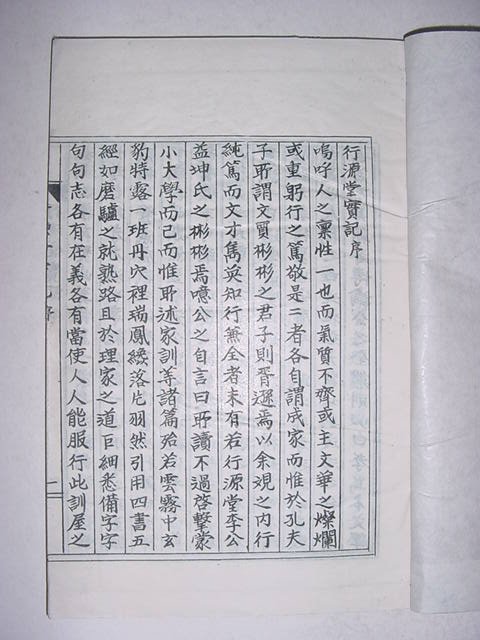 行源堂實記序
嗚呼人之稟性一也而氣質不齊或主文華之燦爛
或重躬行之篤敬是二者各自謂成家而惟於孔夫
子所謂文質彬彬之君子則胥遜焉以余觀之內行
純篤而文才雋英知行兼全者未有若行源堂李公
益坤氏之彬彬焉噫公之自言曰所讀不過啓擊蒙
小大學而已而惟所述家訓等諸篇殆若雲霧中玄
豹特露一班丹穴裡瑞鳳纔落片羽然引用四書五
經如磨驢之就熟路且於理家之道巨細悉備字字
句句志各有在義各有當使人人能服行此訓屋之